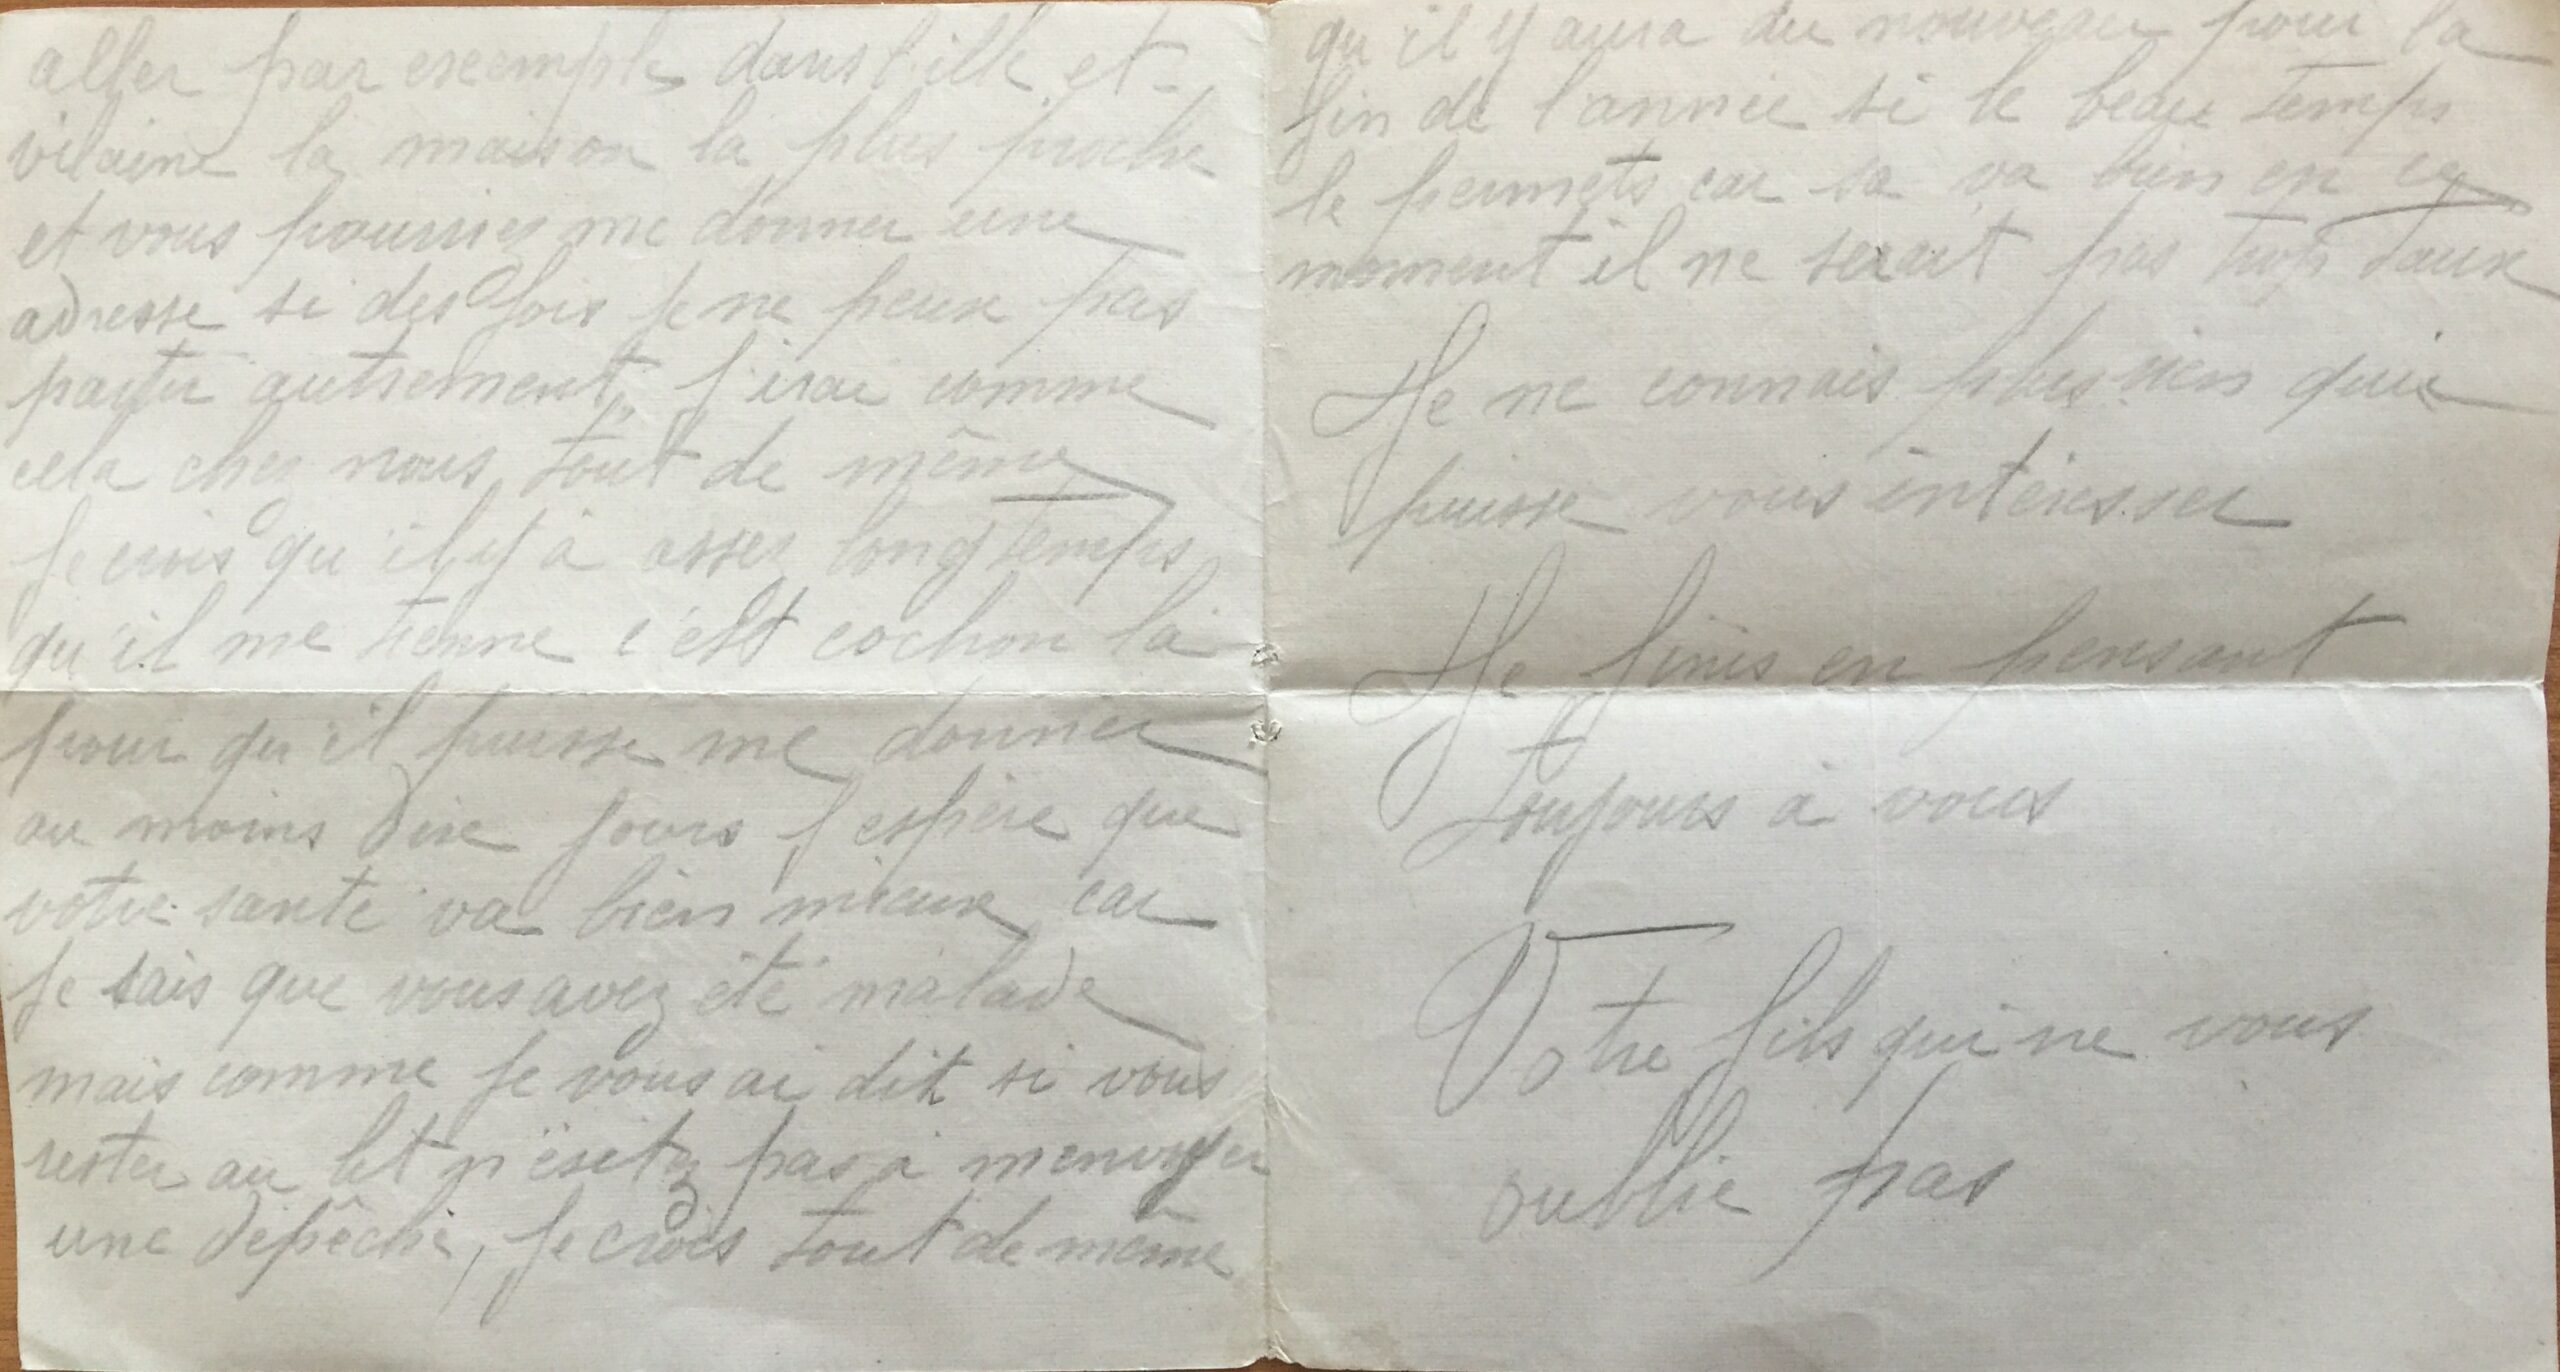 aller par exemple dans l'ille et
vilaine la maison la plus proche
et vous pourriez me donner une
adresse si des fois je ne peux pas
partir autrement, j'irai comme
cela chez nous, tout de même
Je crois qu'il y à assez longtemps
qu'il me tienne c'est cochon là
pour qu'il puisse me donner
au moins dix jours j'espère que
votre santé va bien mieux, car
je sais que vous avez été malade
mais comme je vous ai dit si vous
rester au lit n'ésitez pas à m'envoyer
une dépêche, je crois tout de même
qu'il y aura du nouveau pour la
fin de l'année si le beau temps
le permets car sa va bien en ce
moment il ne serait pas trop
Je ne connais plus rien qui
puisse vous intéresser
Je finis en pensant
toujours à vous
Votre fils qui ne vous
oublie pas